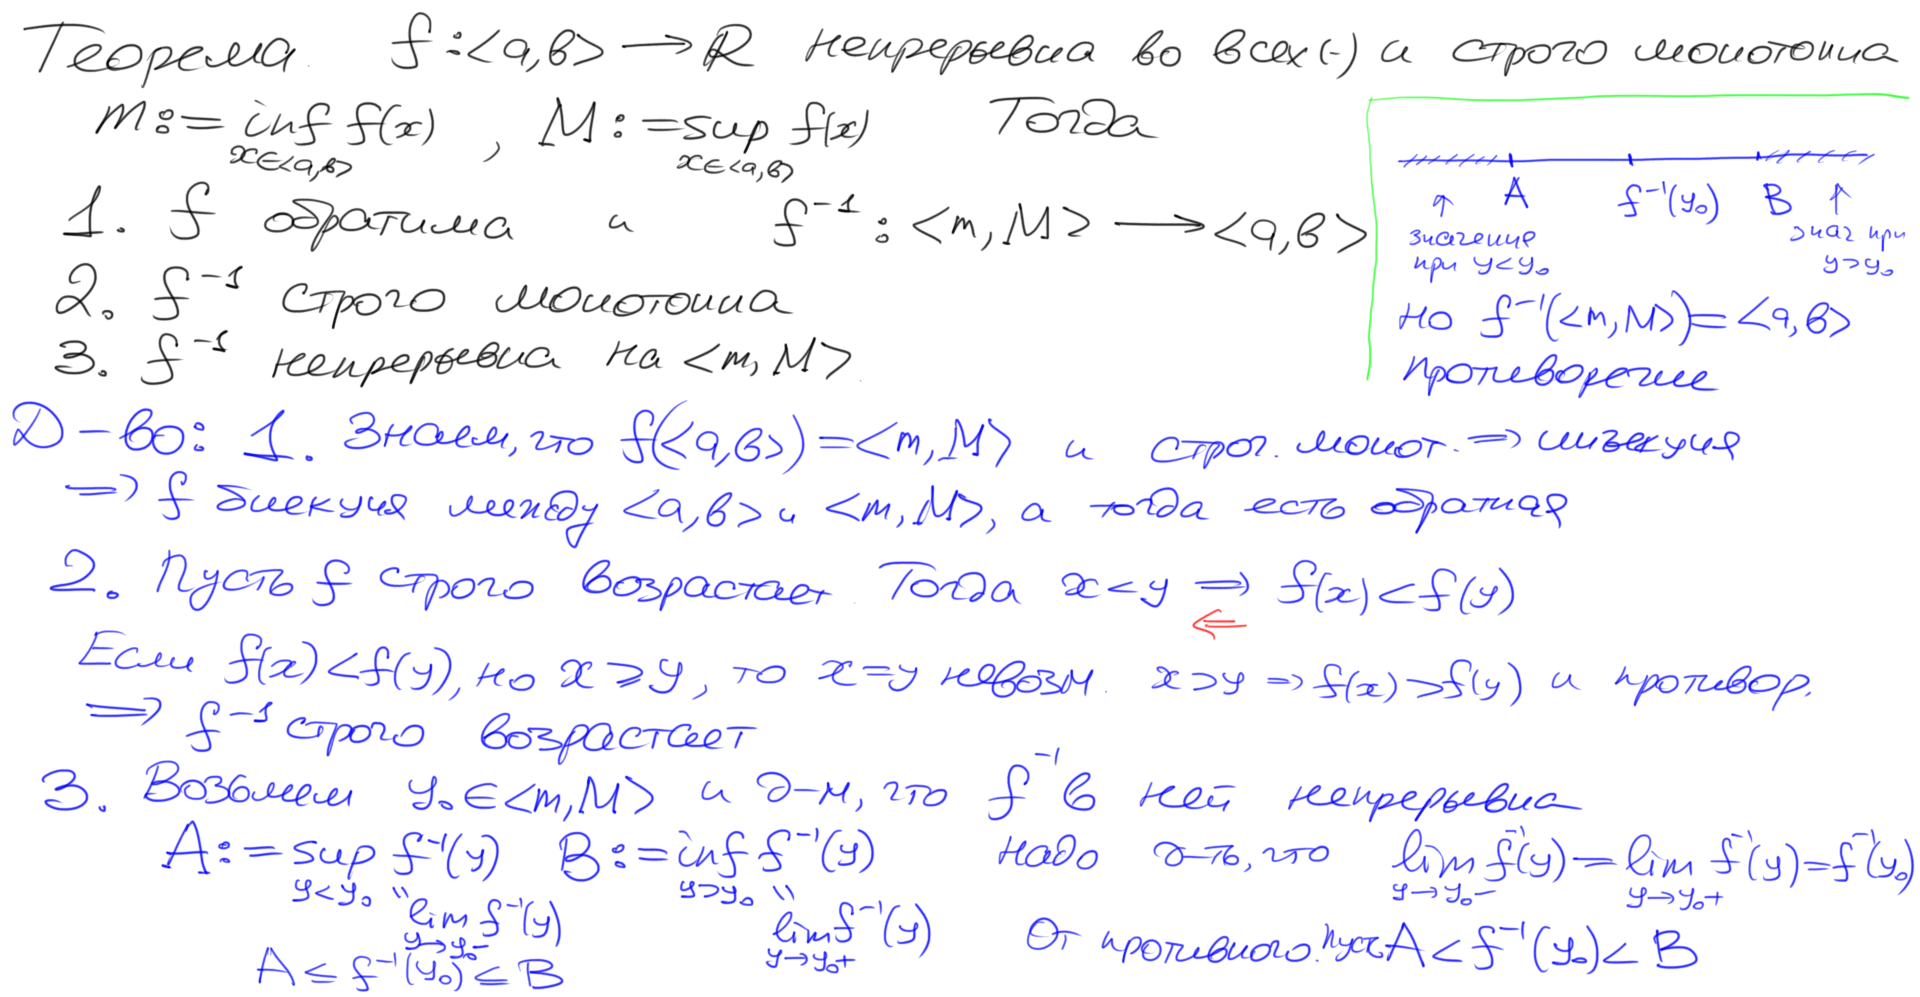 Теорема. f:<a,b> → R непрерывна во всех (·) и строго монотонна
m:= inf f(x), M:= sup f(x) Тогда
x∈<a,b> x∈<a,b>
1. f обратима и f⁻¹: <m,M> → <a,b>
2. f⁻¹ строго монотонна
3. f⁻¹ непрерывна на <m,M>.
A f⁻¹(y₀) B
↑ ↑
значение знач при
при y<y₀ y>y₀
но f⁻¹(<m,M>)=<a,b>
противоречие
Д-во: 1. Знаем, что f(<a,b>)=<m,M> и строг. монот. ⇒ инъекция
⇒ f биекция между <a,b> и <m,M>, а тогда есть обратная
2. Пусть f строго возрастает. Тогда x<y ⇒ f(x)<f(y)
⇐
Если f(x)<f(y), но x⩾y, то x=y невозм. x>y ⇒ f(x)>f(y) и противор.
⇒ f⁻¹ строго возрастает
3. Возьмем y₀∈<m,M> и д-м, что f⁻¹ в ней непрерывна
A:= sup f⁻¹(y) B:= inf f⁻¹(y) надо д-ть, что lim f⁻¹(y)= lim f⁻¹(y)=f⁻¹(y₀)
y<y₀ " y>y₀ " y→y₀- y→y₀+
lim f⁻¹(y) lim f⁻¹(y) От противного. Пусть A<f⁻¹(y₀)<B
y→y₀- y→y₀+
A≤f⁻¹(y₀)≤B